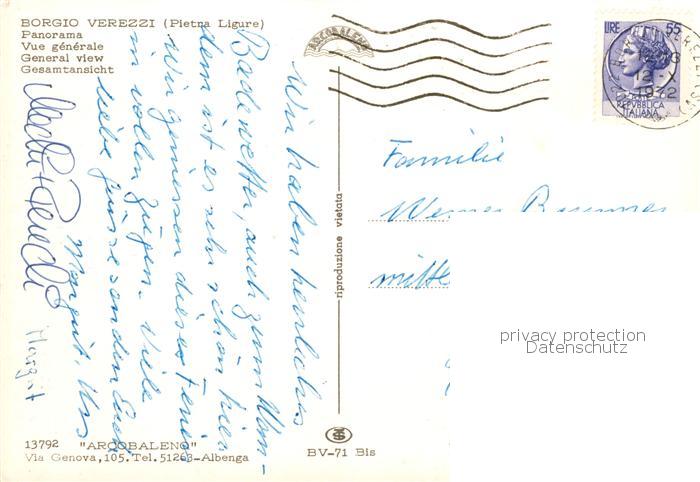 BORGIO VEREZZI (Pietra Ligure)
Panorama
Vue générale
General view
Gesamtansicht
ARCOBALENO
LIRE 55
1972
REPVBBLICA
ITALIANA
Wir haben herrliches
Badewetter, auch zum Wan-
dern ist es sehr schön hier
Wir geniessen diese Ferien
in vollen Zügen. Viele
liebe Grüsse senden Euch
Margrit, Urs
Margrit
riproduzione vietata
Familie
Werner
privacy protection
Datenschutz
13792 "ARCOBALENO"
Via Genova, 105. Tel. 51263-Albenga
BV-71 Bis